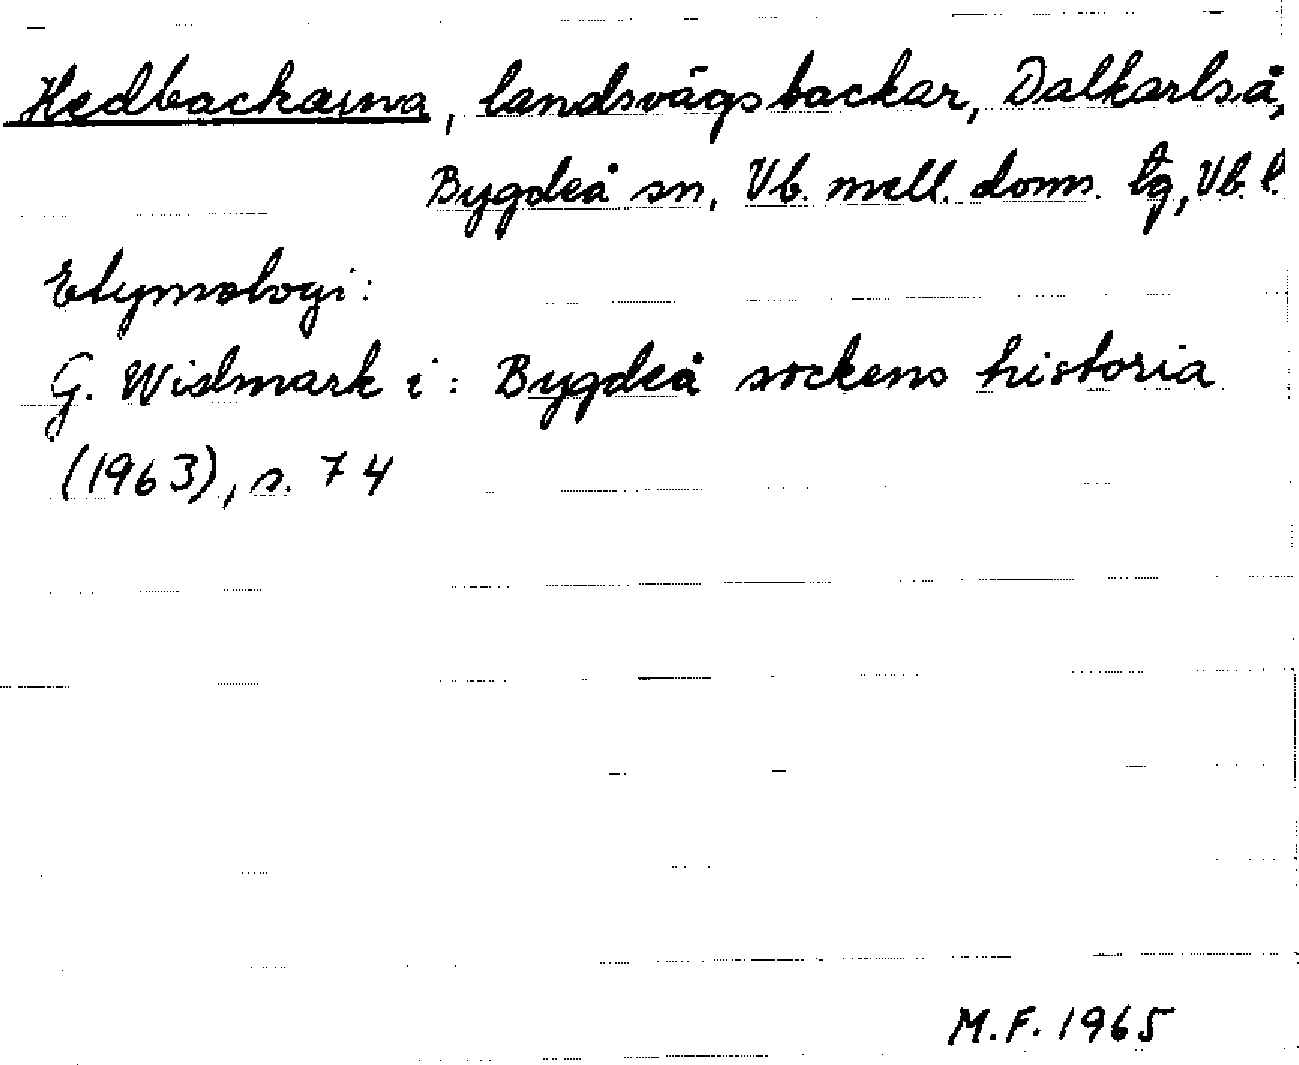 Hedbackarna, landsvägsbackar, Dalkarlså,
Bygdeå sn, Vb. mell. doms. tg, Vb. l.
Etymologi:
G. Widmark i: Bygdeå sockens historia
(1963), s. 74
M.F. 1965